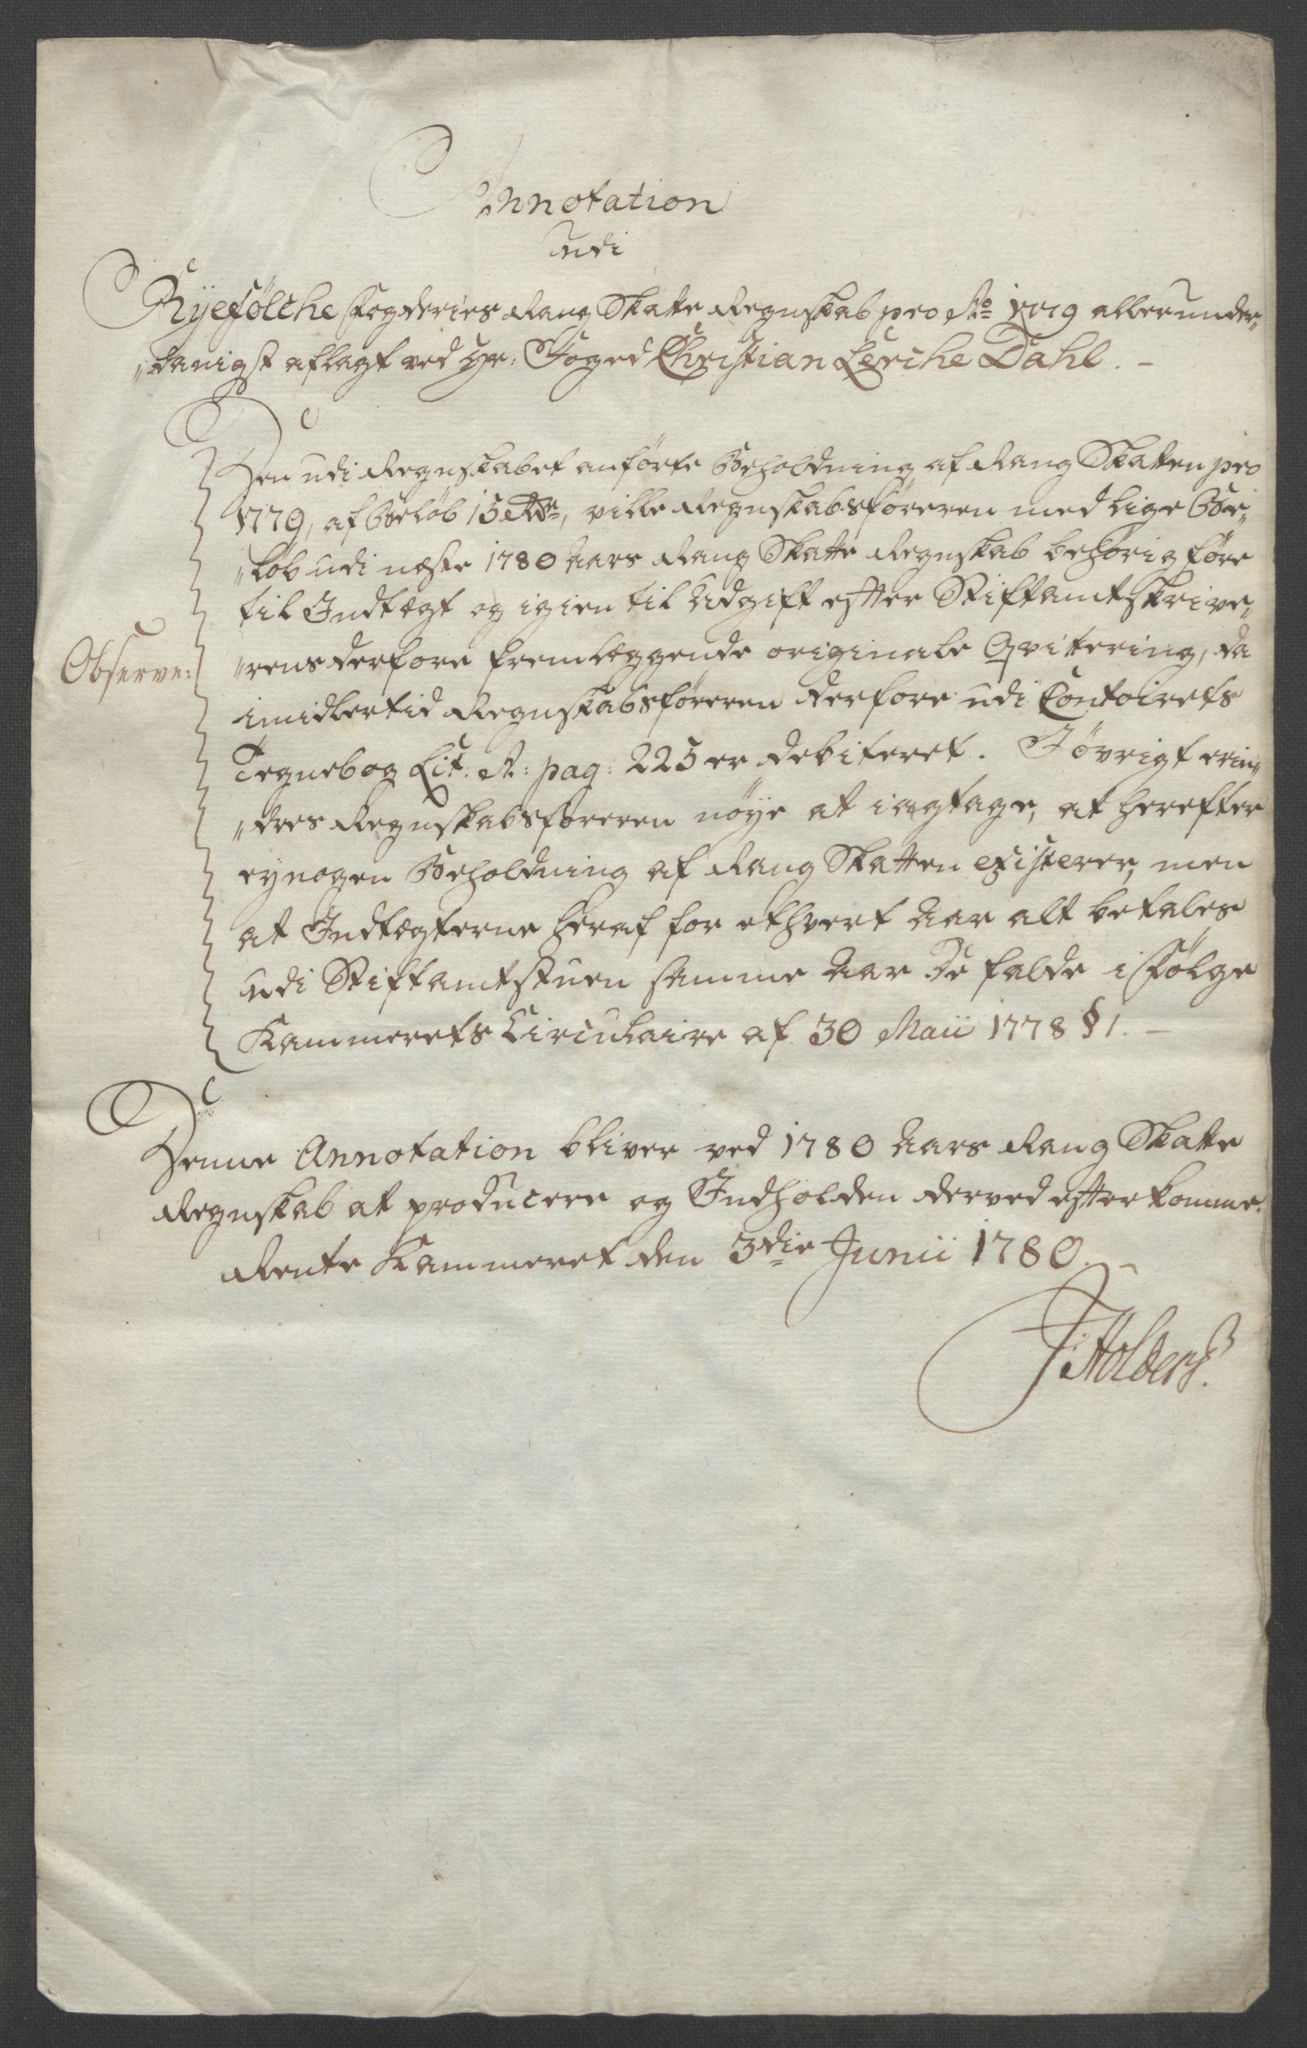 Annotation
udi
Ryefølche Fogderies Rang Skatte Regnskab pro Ao 1779 allerunder„
„danigst aflagt ved Hr: Foged Christian Lerche Dahl. –
Den udi Regnskabet anførte Beholdning af Rang Skatten pro
1779, af Beløb 15 Rdr, ville Regnskabsføreren med lige Be„
„løb udi næste 1780 Aars Rang Skatte Regnskab behørig føre
til Indtægt og igien til Udgift efter Stiftamtskrive„
Observe: „rens derfore fremlæggende originale Qvittering, da
imidlertid Regnskabsføreren derfore udi Contoirets
Tegnebog Lit: A: pag: 225 er debiteret. Iøvrigt erin„
„dres Regnskabsføreren nøye at iagtage, at herefter
ey nogen Beholdning af Rang Skatten existerer, men
at Indtægterne heraf for ethvert Aar alt betales
udi Stiftamtstuen samme Aar de falde i følge
Kammerets Circulaire af 30 Maii 1778 § 1. –
Denne Annotation bliver ved 1780 Aars Rang Skatte
Regnskab at producere og Indholden derved efterkomme.
Rente Kammeret den 3die Junii 1780. –